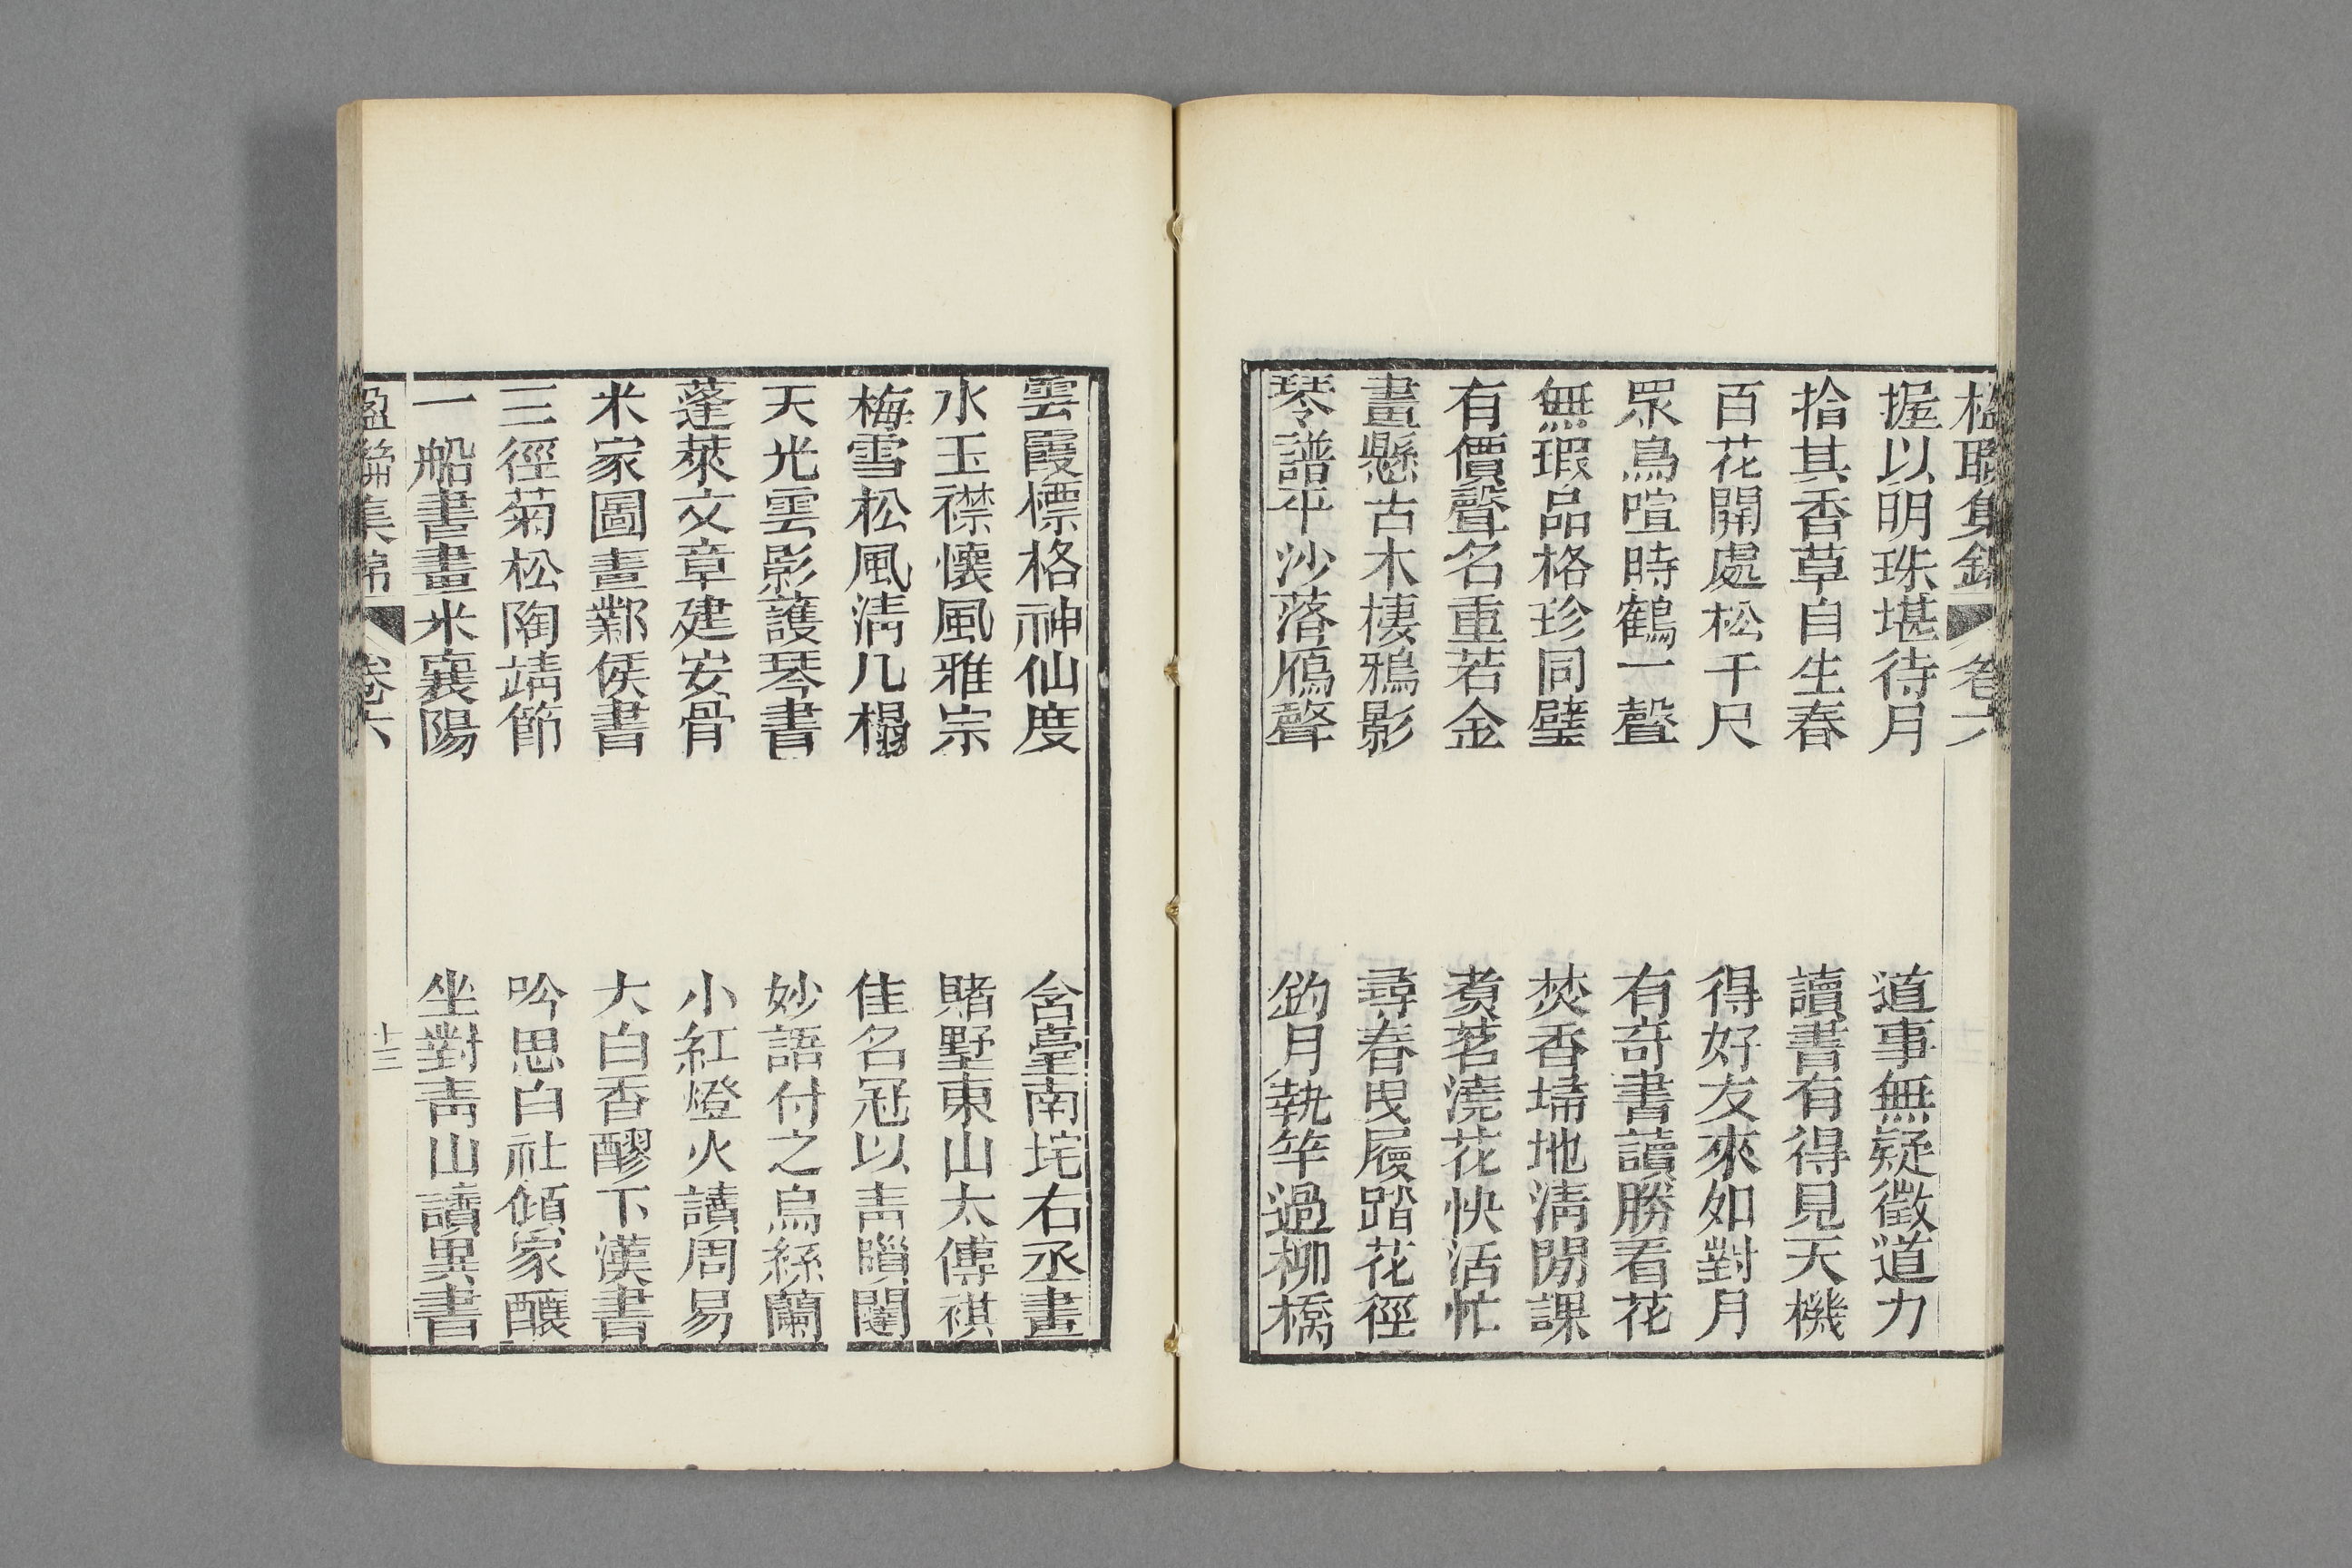 楹聯集錦 卷六
握以明珠堪待月 道事無疑徵道力
拾其香草自生春 讀書有得見天機
百花開處松千尺 得好友來如對月
眾鳥喧時鶴一聲 有奇書讀勝看花
無瑕品格珍同璧 焚香埽地淸閒課
有價聲名重若金 煑茗澆花快活忙
畫懸古木棲鴉影 尋春曳屐踏花徑
琴譜平沙落鴈聲 釣月執竿過柳橋
雲霞標格神仙度 含臺南垞右丞畫
水玉襟懷風雅宗 賭墅東山太傅棋
梅雪松風淸几榻 佳名冠以靑瑣闥
天光雲影護琴書 妙語付之烏絲蘭
蓬萊文章建安骨 小紅燈火讀周易
米家圖畫鄴侯書 大白香醪下漢書
三徑菊松陶靖節 吟思白社傾家釀
一船書畫米襄陽 坐對靑山讀異書
楹聯集錦 卷六 十三